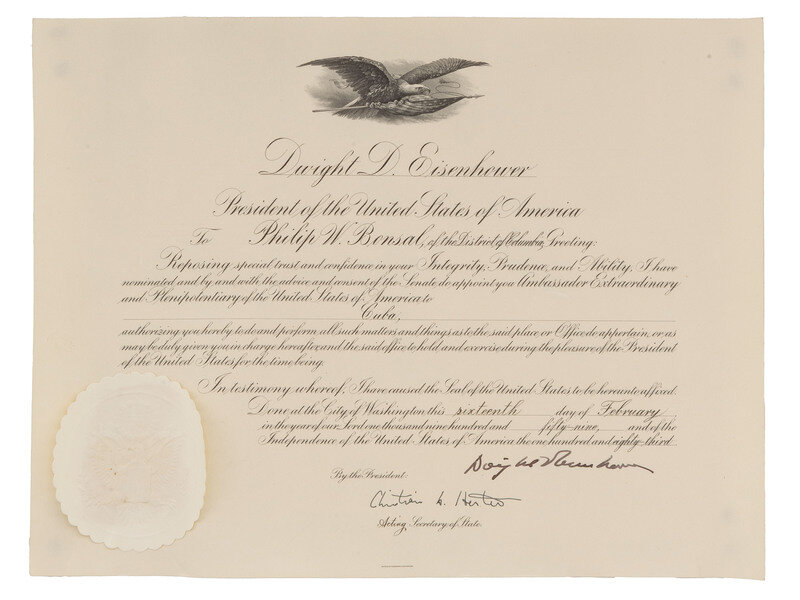 Dwight D. Eisenhower
President of the United States of America
To Philip W. Bonsal, of the District of Columbia, Greeting:
Reposing special trust and confidence in your Integrity, Prudence, and Ability, I have
nominated and by and with the advice and consent of the Senate do appoint you Ambassador Extraordinary
and Plenipotentiary of the United States of America to
Cuba,
authorizing you hereby to do and perform all such matters and things as to the said place or Office do appertain, or as
may be duly given you in charge hereafter, and the said office to hold and exercise during the pleasure of the President
of the United States for the time being.
In testimony whereof, I have caused the Seal of the United States to be hereunto affixed.
Done at the City of Washington this sixteenth day of February
in the year of our Lord one thousand nine hundred and fifty-nine, and of the
Independence of the United States of America the one hundred and eighty-third.
Dwight D Eisenhower
By the President:
Christian A. Herter
Acting Secretary of State.